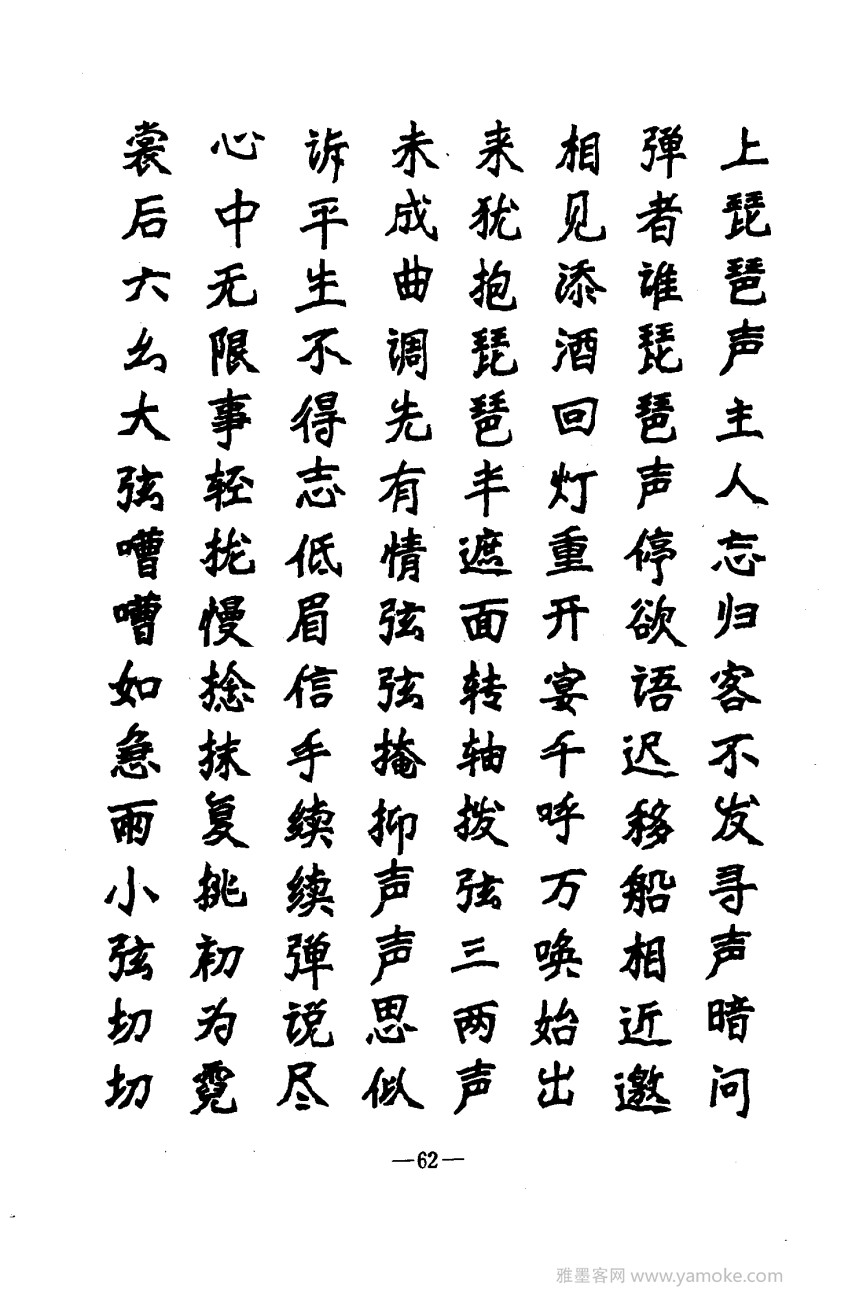 上琵琶声主人忘归客不发寻声暗问
弹者谁琵琶声停欲语迟移船相近邀
相见添酒回灯重开宴千呼万唤始出
来犹抱琵琶半遮面转轴拨弦三两声
未成曲调先有情弦弦掩抑声声思似
诉平生不得志低眉信手续续弹说尽
心中无限事轻拢慢捻抹复挑初为霓
裳后六幺大弦嘈嘈如急雨小弦切切
—62—
雅墨客网 www.yamoke.com